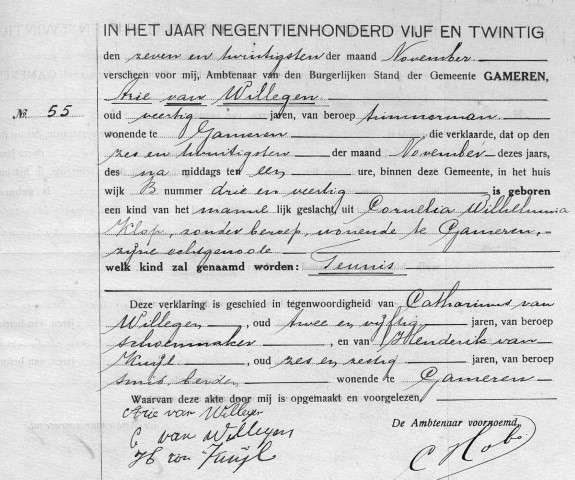 IN HET JAAR NEGENTIENHONDERD VIJF EN TWINTIG
den zeven en twintigsten der maand November
verscheen voor mij, Ambtenaar van den Burgerlijken Stand der Gemeente GAMEREN,
No. 55 Arie van Willegen
oud veertig jaren, van beroep timmerman
wonende te Gameren, die verklaarde, dat op den
zes en twintigsten der maand November dezes jaars,
des na middags ten een ure, binnen deze Gemeente, in het huis
wijk B nummer drie en veertig is geboren
een kind van het manne lijk geslacht, uit Cornelia Wilhelmina
Klop, zonder beroep, wonende te Gameren,
zijne echtgenoote
welk kind zal genaamd worden: Teunis
Deze verklaring is geschied in tegenwoordigheid van Catharinus van
Willegen, oud twee en vijftig jaren, van beroep
schoenmaker, en van Hendrik van
Kuijl, oud zes en zestig jaren, van beroep
smid, beiden wonende te Gameren
Waarvan deze akte door mij is opgemaakt en voorgelezen.
Arie van Willegen
De Ambtenaar voornoemd,
C van Willegen
H van Kuijl
C Hobo